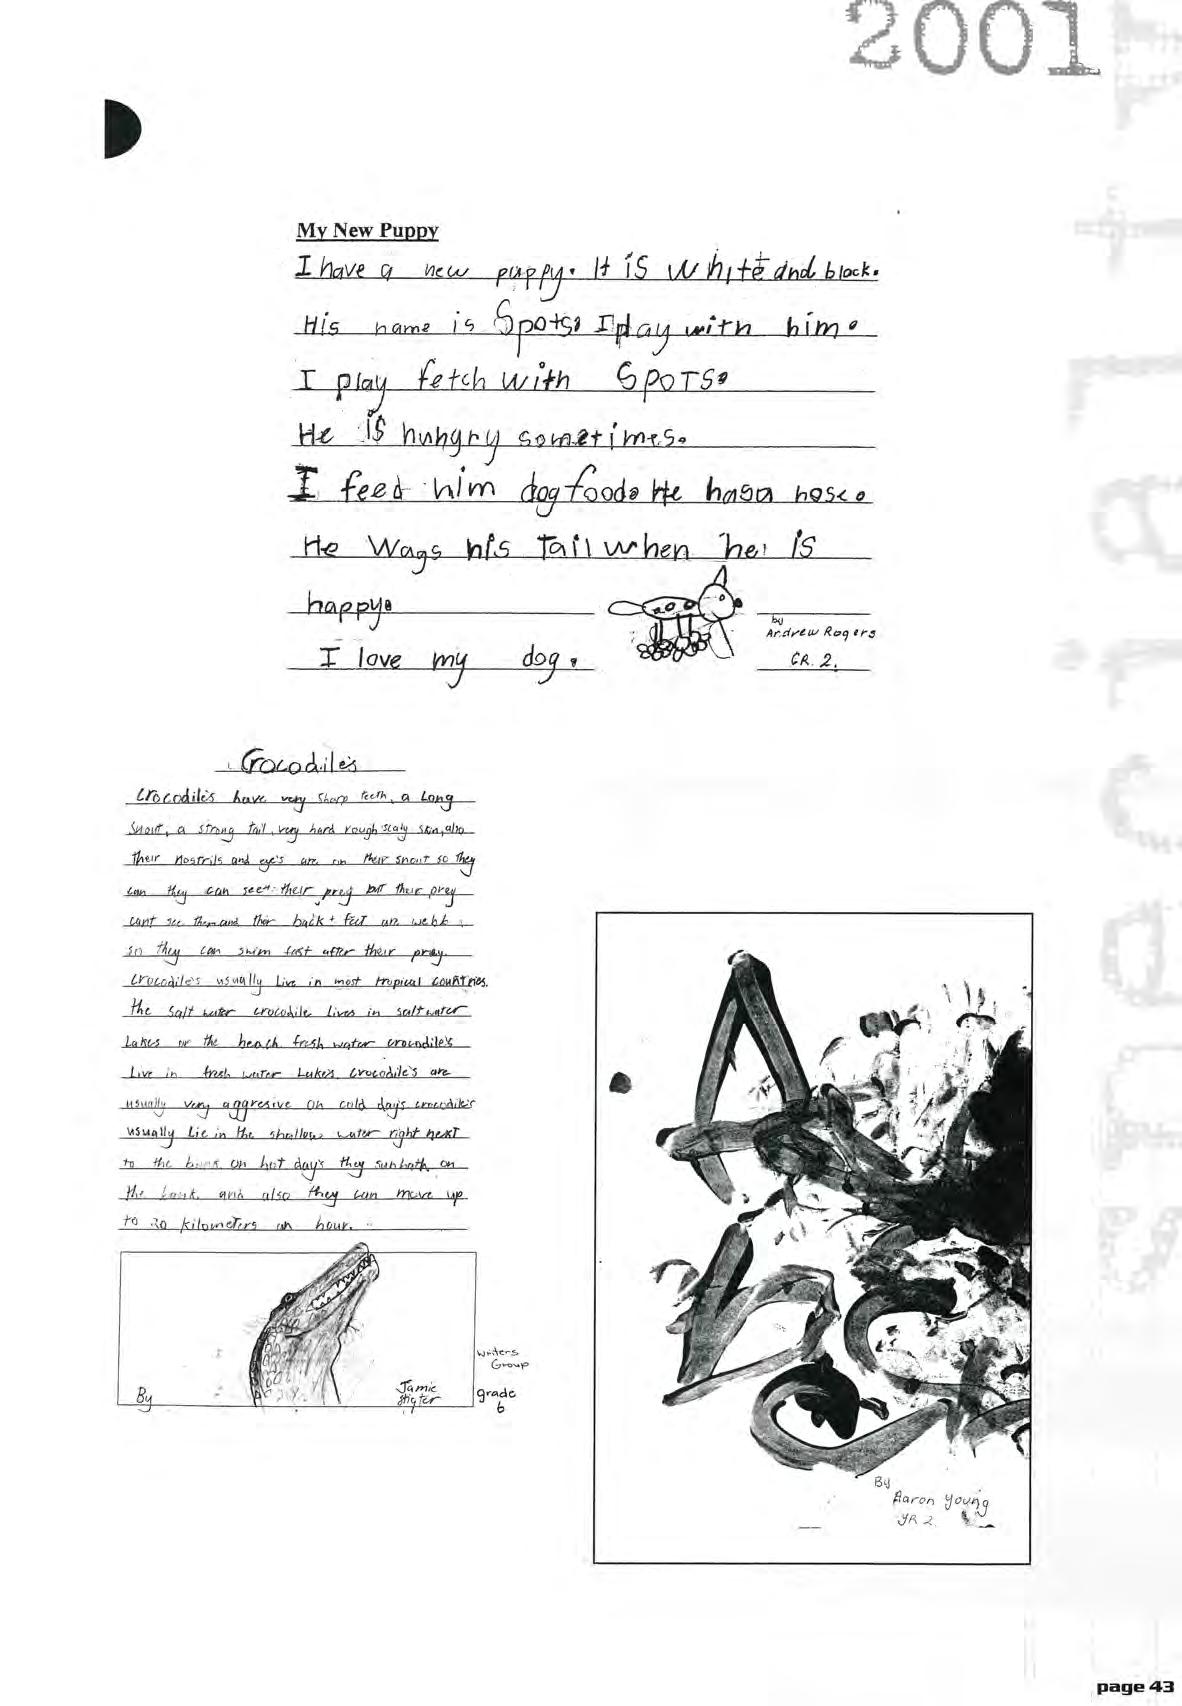 2001
My New Puppy
I have a new puppy. It is white and black.
His name is Spots. I play with him.
I play fetch with Spots.
He is hungry sometimes.
I feed him dog food. He has a nose.
He wags his tail when he is
happy.
I love my dog.
by
Andrew Rogers
GR. 2.
Crocodile's
Crocodile's have very sharp teeth, a Long
snout, a strong tail, very hard rough scaly skin, also
their nostrils and eye's are on their snout so they
can they can see their prey but their prey
cant see them and their back feet are webb
so they can swim fast after their prey.
Crocodile's usually Live in most tropical countries.
the salt water crocodile Lives in saltwater
Lakes or the beach. fresh water crocodile's
Live in fresh water Lakes. crocodile's are
usually very aggresive on cold day's crocodile's
usually Lie in the shallow water right next
to the bank on hot day's they sunbath on
the bank. and also they can move up
to 30 kilometers an hour.
By
Jamie
Writers
Group
grade
6
By
Aaron Young
YR 2.
page 43